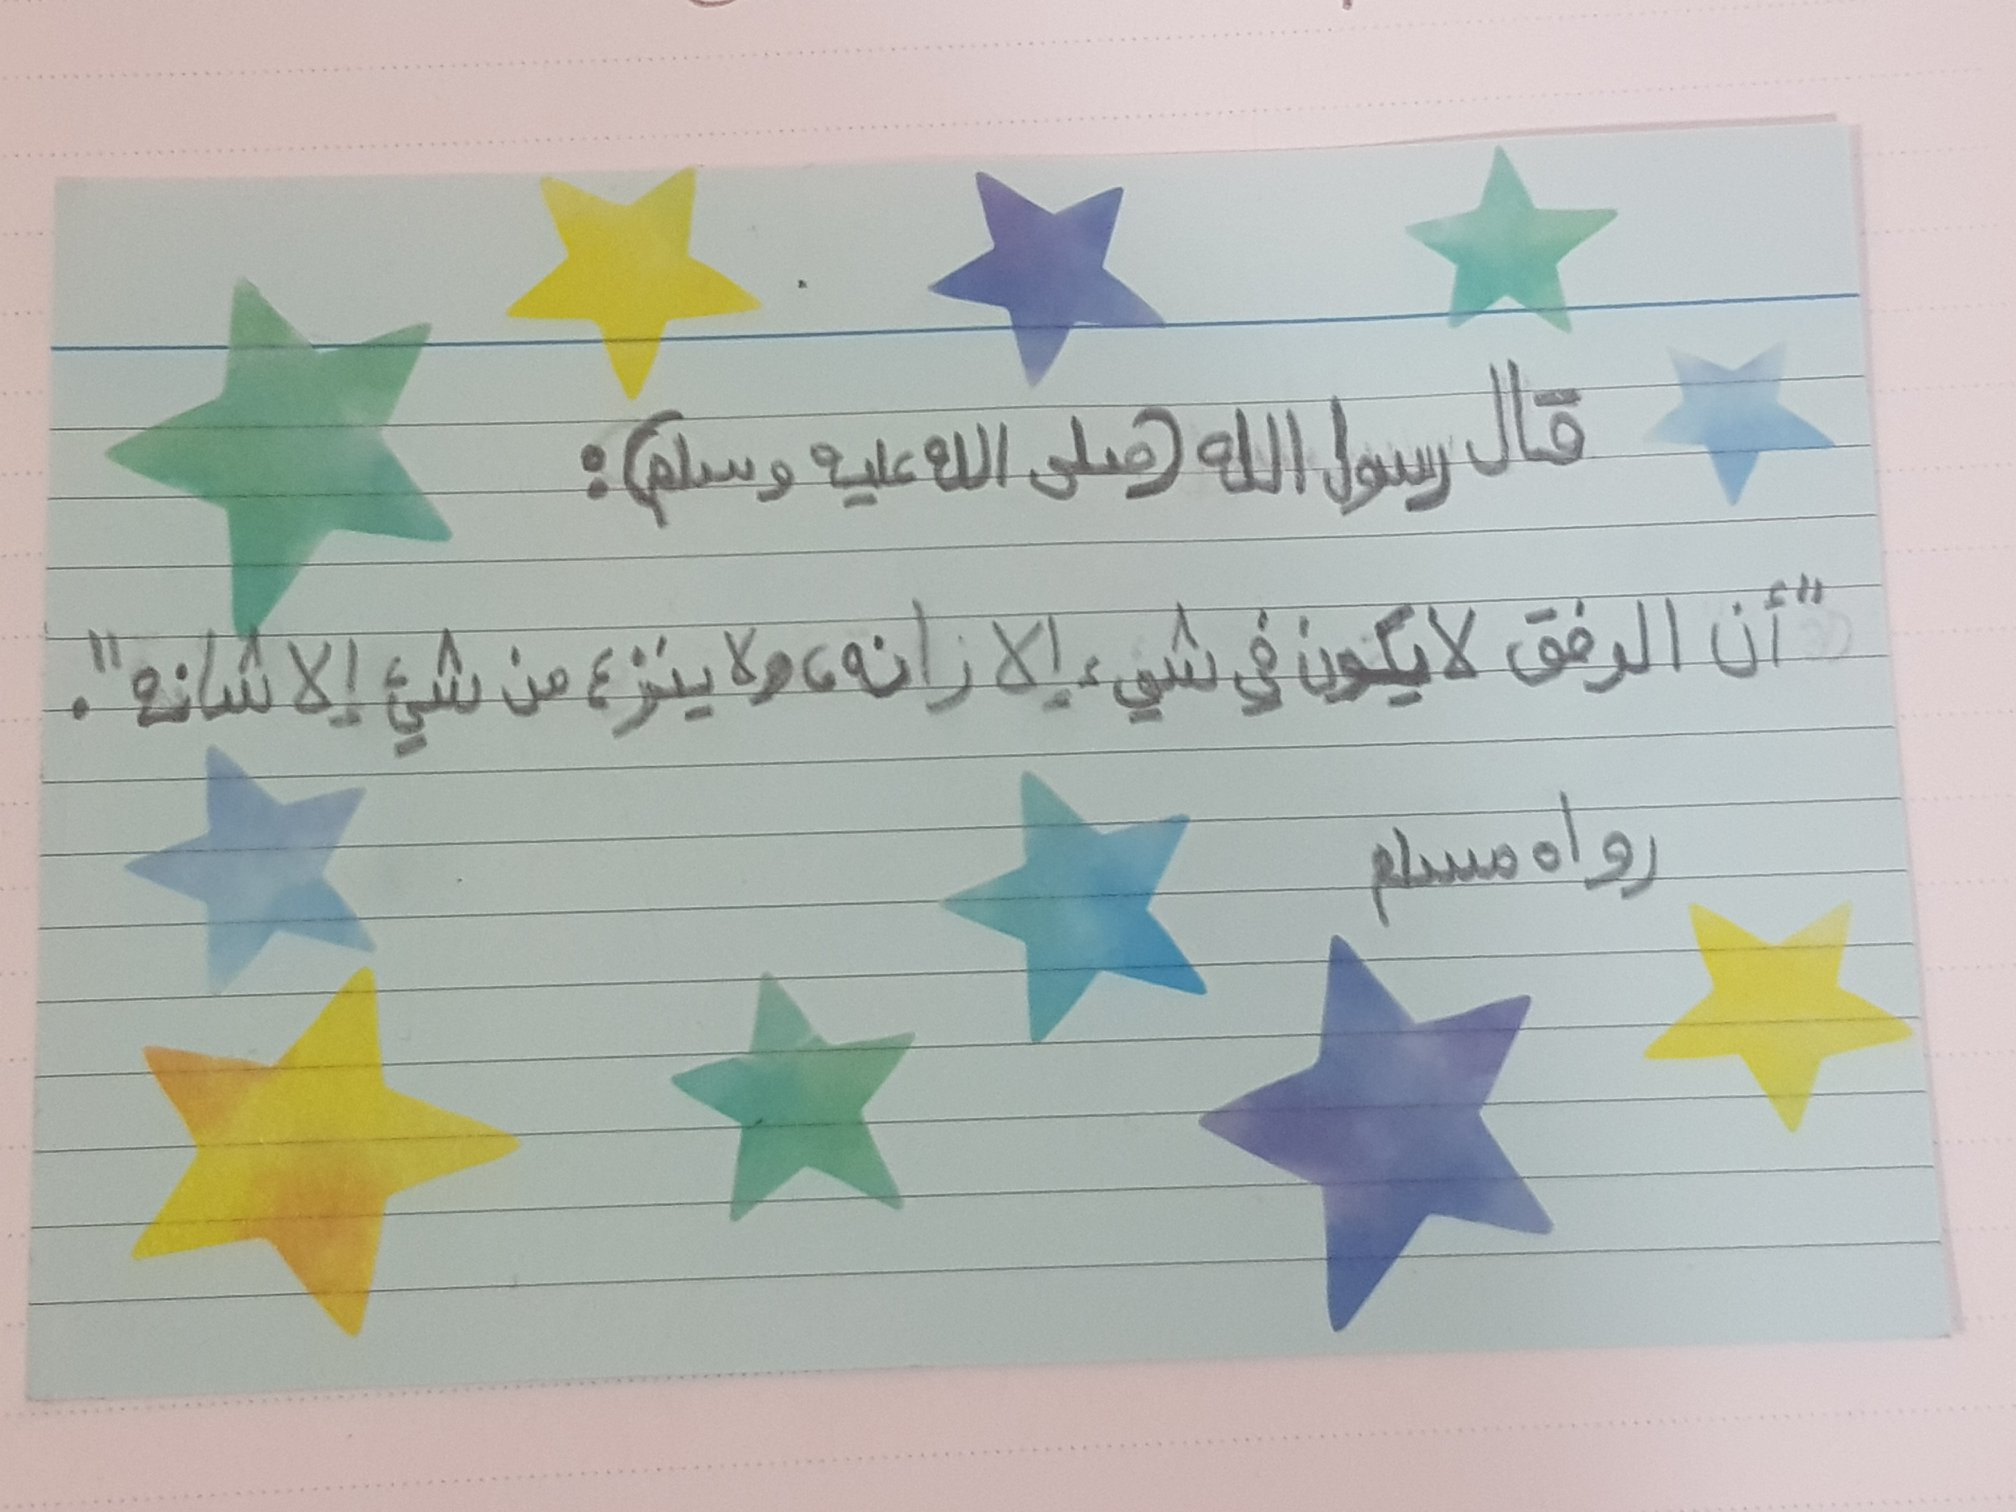 قال رسول الله (صلى الله عليه وسلم):
"أن الرفق لا يكون في شيء إلا زانه، ولا ينزع من شئ إلا شانه".
رواه مسلم